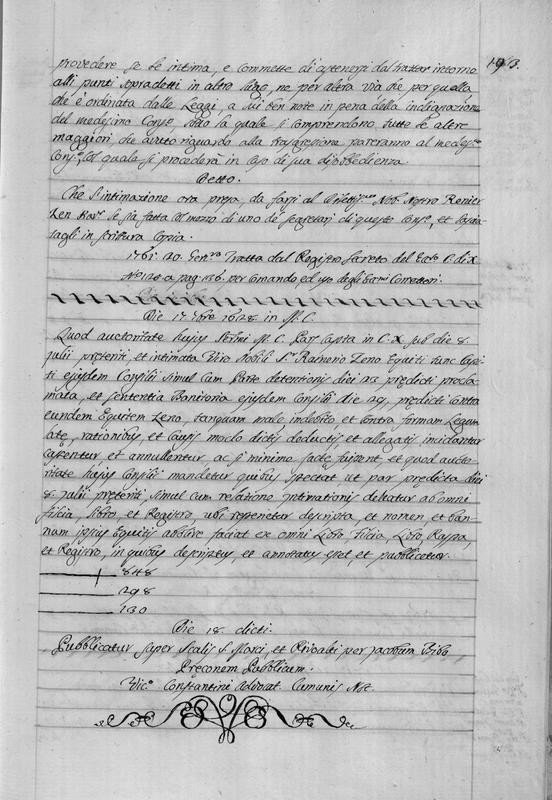 193.
provedere se le intima, e commette di astenersi dal trattar intorno
alli punti sopradetti in altro loco, ne per altra via che per quella,
che è ordinata dalle Leggi, a lui ben note in pena della indignazione
del medesimo Conso, sotto la quale si comprendono tutte le altre
maggiori, che avuto riguardo alla trasgressione pareranno al medesmo
Conso, col quale si procederà in caso di sua disobbedienza.
Detto.
Che l'intimazione ora presa, da farsi al Nob. Nostro Renier
Zen Kavr. le sia fatta col mezzo di uno de segretarj di questo Conso, et lascia-
tagli in scrittura Copia.
1761. 20. Genro Tratta dal Registro secreto del Ecco C. di X
No 120 a pag. 136. per comando ed uso degli Ecmi Corretori.
Die 17 7bre 1628. in M. C.
Quod auctoritate hujus Sermi M. C. Pars capta in C. X sub die 8.
julii preteriti, et intimata Viro Nobili Sr. Raineno Zeno Equiti tunc Capi-
ti ejusdem Consilii simul cum Parte detentionis diei 23 predicti procla-
mata, et sententia Bannitoria ejusdem Consilii die 29. predicti contra
eundem Equitem Zeno, tanquam male indebite et contra formam Legum
latæ, rationibus, et causis modo dictis deductis et allegatis incidantur
cassentur et annullentur ac si minime factæ fuissent, et quod aucto-
ritate hujus Consilii mandetur quibus spectat ut pars predicta diei
8. julii preteriti simul cum relatione intimationis debatur ab omni
filcia, libro, et Registro, ubi reperietur descripta, et nomen, et ban-
num ipsius Equitis abolire faciat ex omni Libro Filcia, Libro, Raspa,
et Registro, in quibus descriptus, et annotatus esset, et pubblicetur.
848
298
130
Die 18. dicti.
Pubblicatur super Scalis S. Marci, et Rivoalti per Jacobum Bibo
Preconem Pubblicum.
Vico Constantini Advocat. Comunis Not.